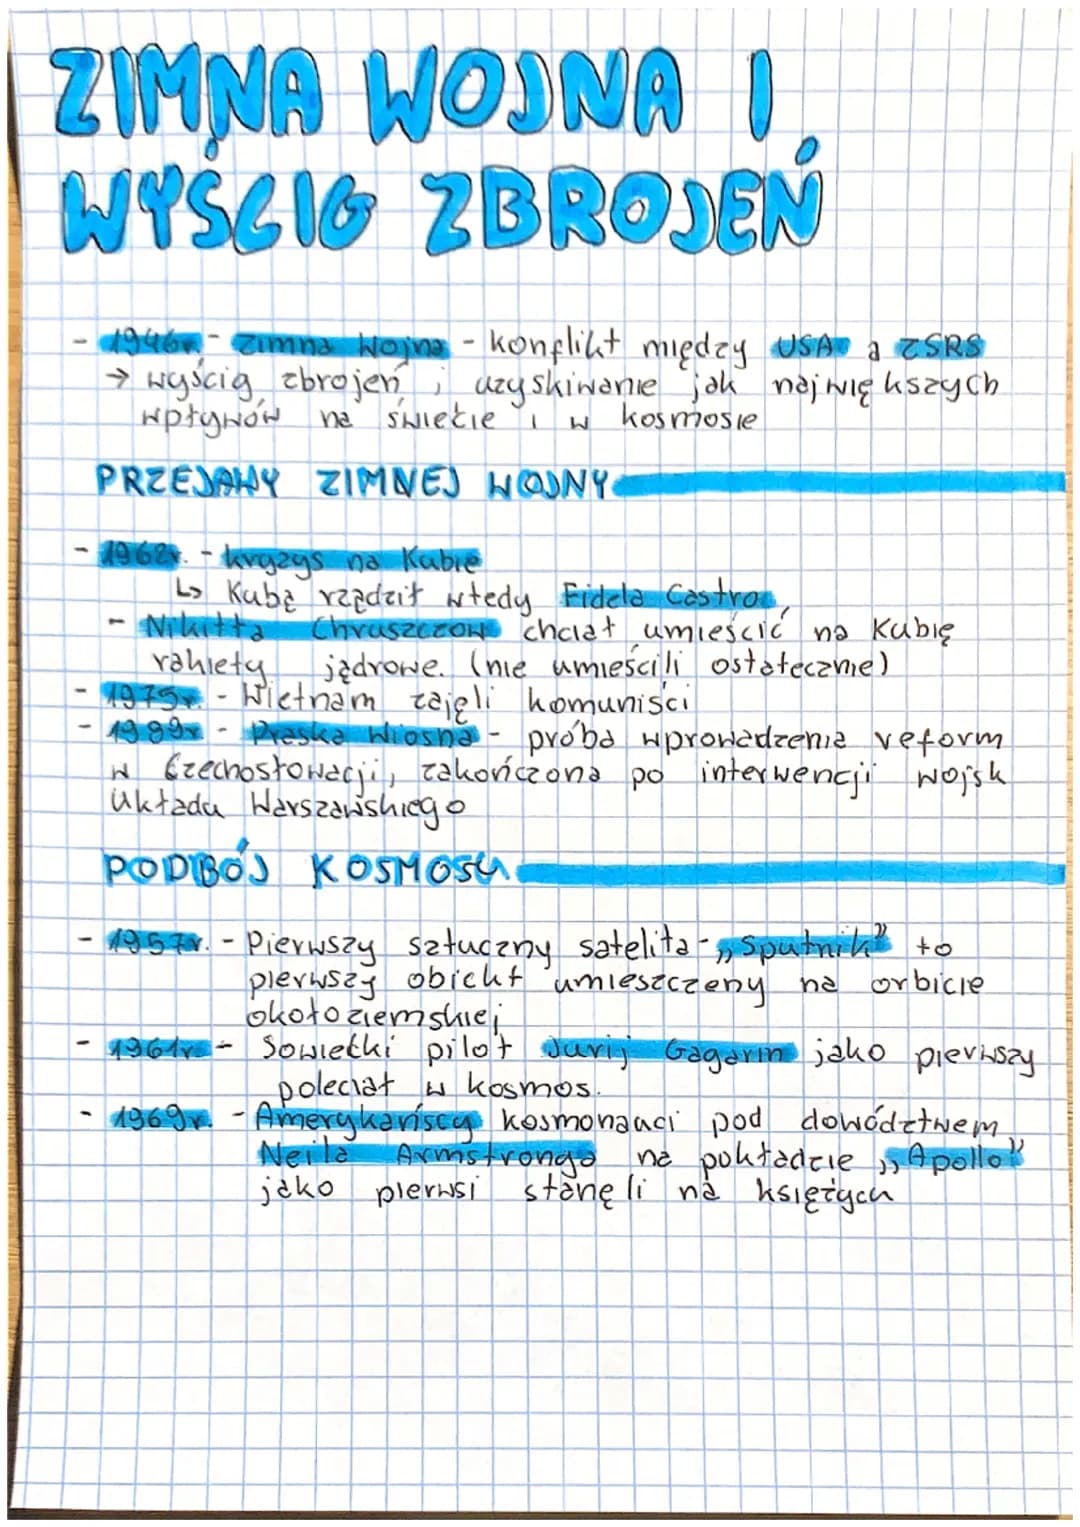 ZIMNA WOJNA I
WYŚCIG ZBROJEŃ
- 1946r. - Zimna Wojna - konflikt między USA a ZSRS
→ wyścig zbrojeń i uzyskiwanie jak największych
wpływów na świecie i w kosmosie
PRZEJAWY ZIMNEJ WOJNY
- 1962r. - kryzys na Kubie
↳ Kubą rządził wtedy Fidela Castro,
- Nikitta Chruszczow chciał umieścić na Kubię
rakiety jądrowe. (nie umieścili ostatecznie)
- 1975r. - Wietnam zajęli komuniści
- 1989r - Praska Wiosna - próba wprowadzenia reform
w Czechosłowacji, zakończona po interwencji wojsk
Układu Warszawskiego
PODBÓJ KOSMOSU
- 1957r. - Pierwszy sztuczny satelita - „Sputnik" to
pierwszy obiekt umieszczeny na orbicie
okołoziemskiej
- 1961r - Sowiecki pilot Jurij Gagarin jako pierwszy
poleciał w kosmos.
- 1969r. - Amerykańscy kosmonauci pod dowództwem
Neila Armstronga na pokładzie „Apollo"
jako pierwsi stanęli na księżycu